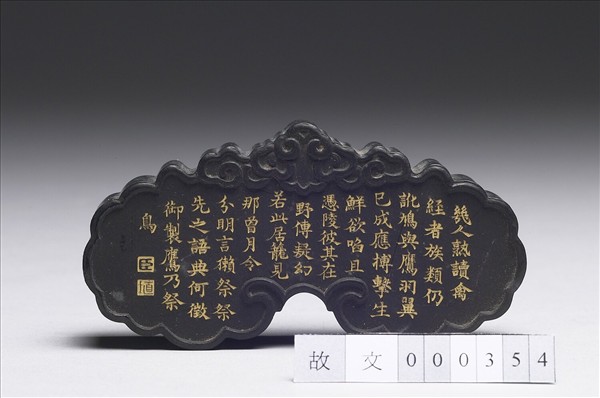 幾人熟讀禽
經者族類仍
訛鳩與鷹羽翼
已成應搏擊生
鮮欲啗且
憑陵彼其在
野傳疑幻
若此居籠見
那曾月令
分明言獺祭祭
先之語典何徵
御製鷹乃祭
鳥
臣
故文000354